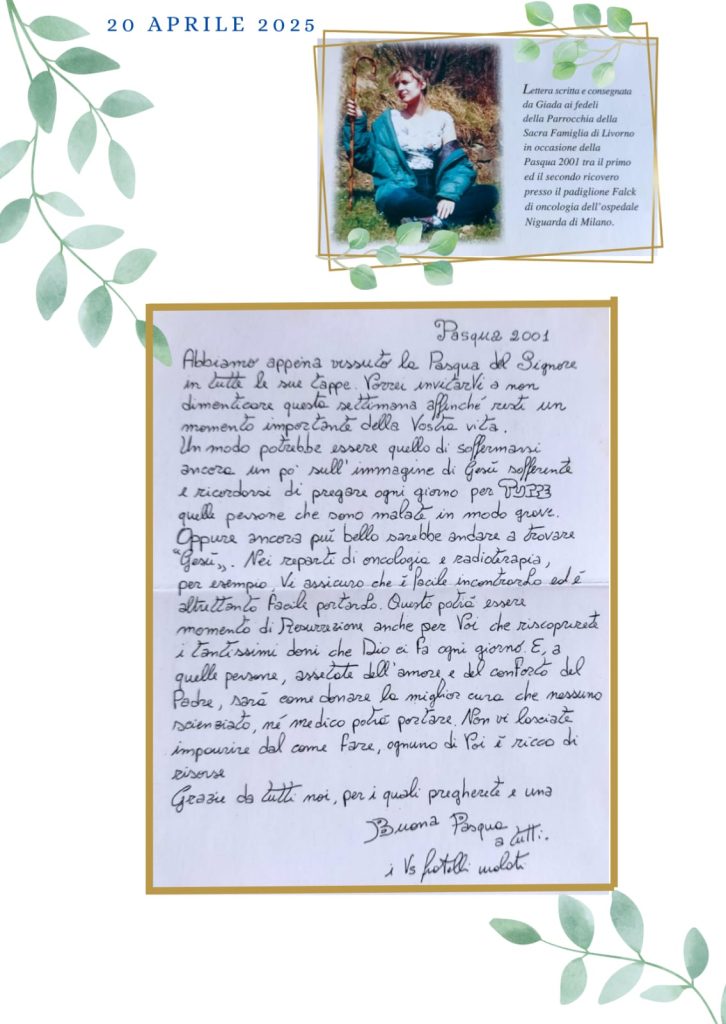 20 APRILE 2025
Lettera scritta e consegnata
da Giada ai fedeli
della Parrocchia della
Sacra Famiglia di Livorno
in occasione della
Pasqua 2001 tra il primo
ed il secondo ricovero
presso il padiglione Falck
di oncologia dell'ospedale
Niguarda di Milano.
Pasqua 2001
Abbiamo appena vissuto la Pasqua del Signore
in tutte le sue tappe. Vorrei invitarVi a non
dimenticare questa settimana affinché resti un
momento importante della Vostra vita.
Un modo potrebbe essere quello di soffermarsi
ancora un po' sull'immagine di Gesù sofferente
e ricordarsi di pregare ogni giorno per TUTTE
quelle persone che sono malate in modo grave.
Oppure ancora più bello sarebbe andare a trovare
"Gesù". Nei reparti di oncologia e radioterapia,
per esempio. Vi assicuro che è facile incontrarlo ed è
altrettanto facile portarlo. Questo potrà essere
momento di Resurrezione anche per Voi che riscoprirete
i tantissimi doni che Dio ci fa ogni giorno. E, a
quelle persone, assetate dell'amore e del conforto del
Padre, sarà come donare la miglior cura che nessuno
scienziato, né medico potrà portare. Non vi lasciate
impaurire dal come fare, ognuno di Voi è ricco di
risorse
Grazie da tutti noi, per i quali pregherete e una
Buona Pasqua
a tutti.
i Vs fratelli malati